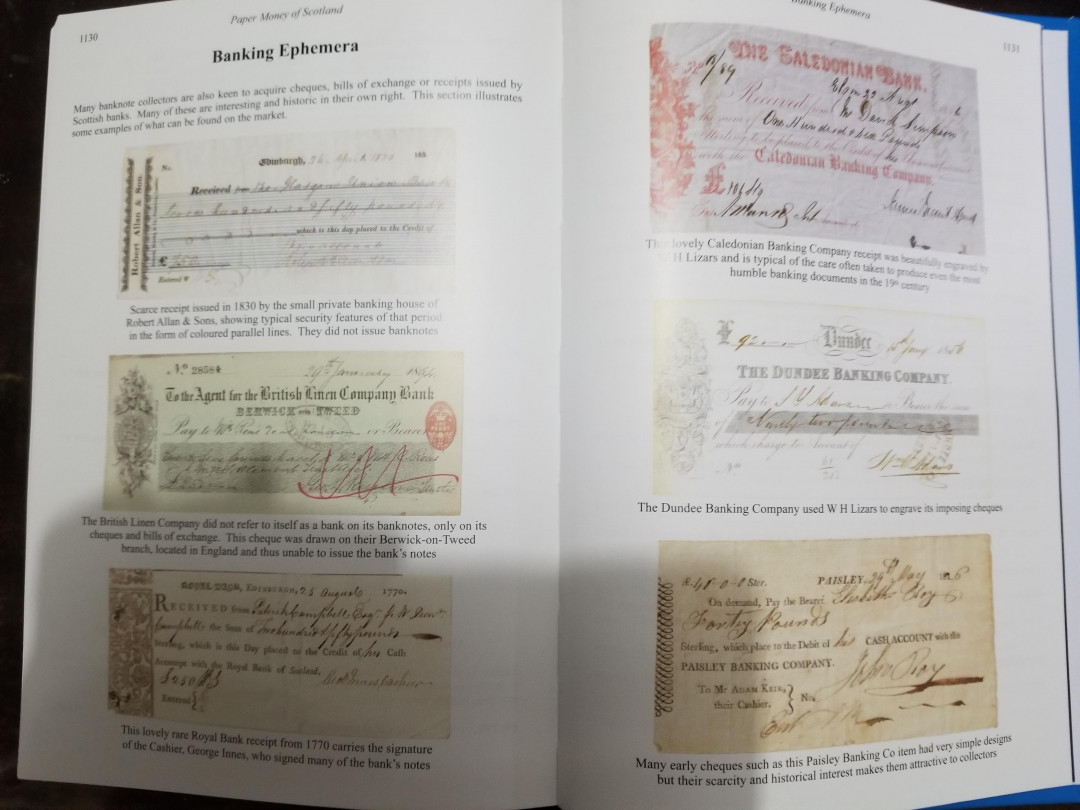 Paper Money of Scotland
1130
Banking Ephemera
Many banknote collectors are also keen to acquire cheques, bills of exchange or receipts issued by
Scottish banks. Many of these are interesting and historic in their own right. This section illustrates
some examples of what can be found on the market.
Robert Allan & Son
No.
Edinburgh, 183
Received
which is this day placed to the Credit of
£
Entered
Scarce receipt issued in 1830 by the small private banking house of
Robert Allan & Sons, showing typical security features of that period
in the form of coloured parallel lines. They did not issue banknotes
No 28584
29th January
To the Agent for the British Linen Company Bank
BERWICK ON TWEED
Pay to or Bearer
The British Linen Company did not refer to itself as a bank on its banknotes, only on its
cheques and bills of exchange. This cheque was drawn on their Berwick-on-Tweed
branch, located in England and thus unable to issue the bank's notes
ROYAL BANK, EDINBURGH, 25 August 1770.
RECEIVED from Patrick Campbell, Esqr
Campbell the Sum of Two hundred & fifty pounds
Sterling, which is this Day placed to the Credit of his Cash
Accompt with the Royal Bank of Scotland,
£250
Entered
This lovely rare Royal Bank receipt from 1770 carries the signature
of the Cashier, George Innes, who signed many of the bank's notes
Banking Ephemera
1131
THE CALEDONIAN BANK.
Elgin 22 Augt
Received from Mr David Simpson
the sum of One Hundred & Pounds
with the Caledonian Banking Company.
£
This lovely Caledonian Banking Company receipt was beautifully engraved by
W H Lizars and is typical of the care often taken to produce even the most
humble banking documents in the 19th century
£ 92 Dundee
THE DUNDEE BANKING COMPANY.
Pay to or Bearer the sum
of Ninety two pounds
which charge to Account of
The Dundee Banking Company used W H Lizars to engrave its imposing cheques
£.40-0-0 Ster. PAISLEY, 29th May
On demand, Pay the Bearer Elizabeth Roy
Fourty Pounds
Sterling, which place to the Debit of his CASH ACCOUNT with the
PAISLEY BANKING COMPANY.
John Roy
To Mr ADAM KEIR,
their Cashier.
No.
Many early cheques such as this Paisley Banking Co item had very simple designs
but their scarcity and historical interest makes them attractive to collectors